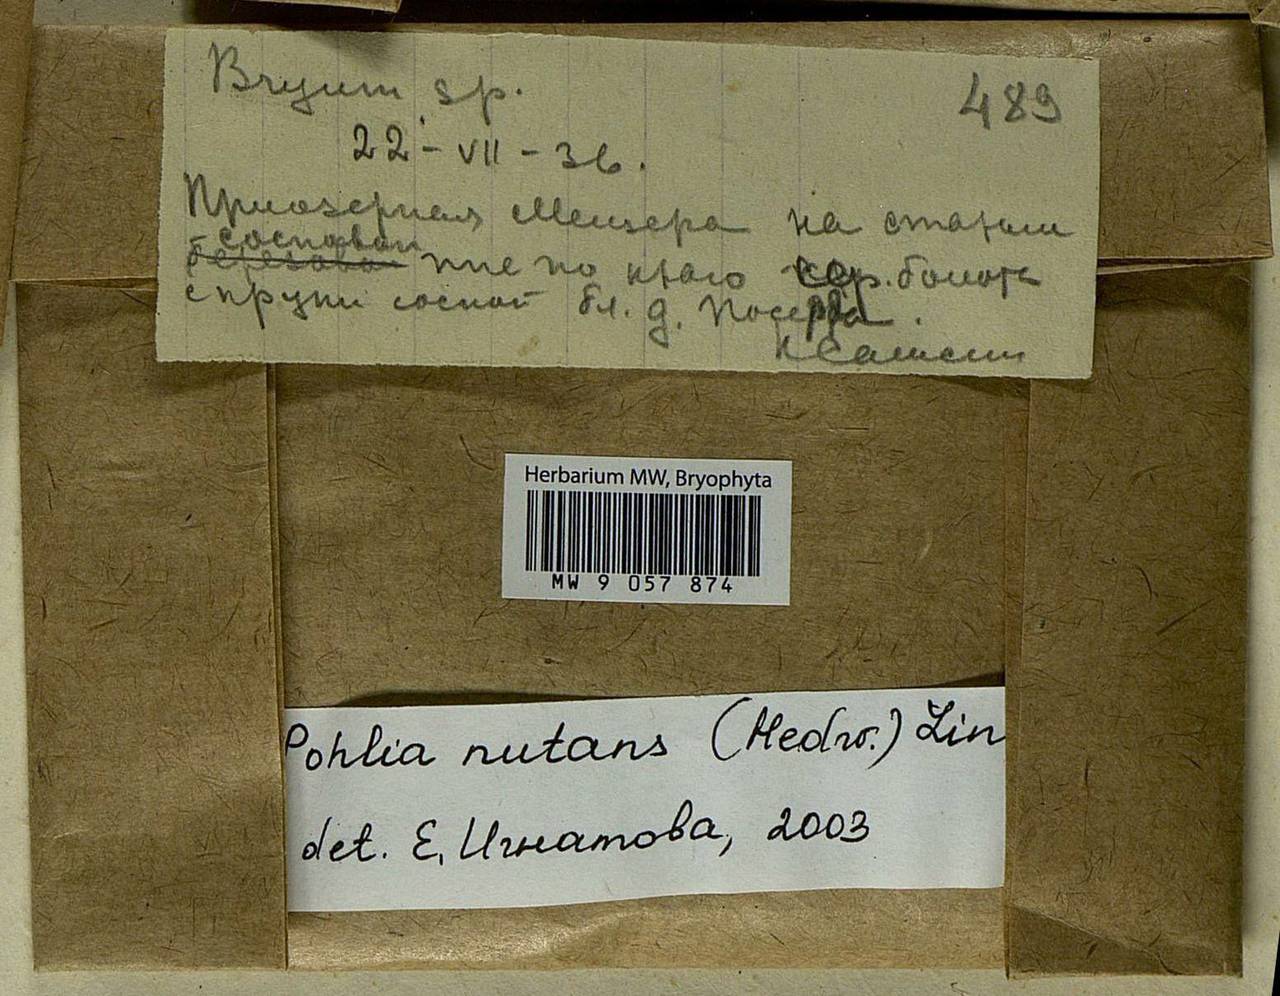 Bryum sp.
489
22-VII-36.
Приозерная Мещера на старом
сосновом
березовом пне по краю сф. болота
с крупн сосной бл. д.
Herbarium MW, Bryophyta
MW 9 057 874
Pohlia nutans (Hedw.) Lin
det. Е. Игнатова, 2003